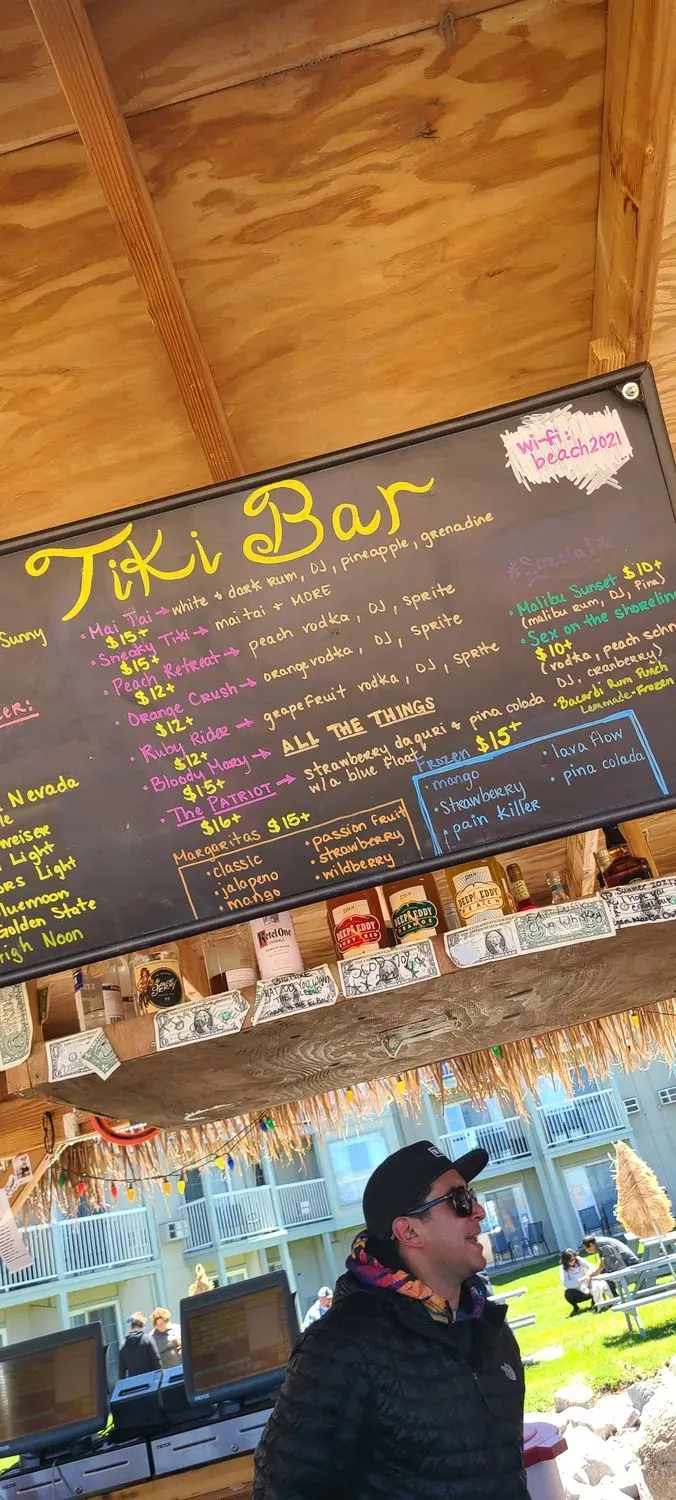 Tiki Bar
wi-fi:
beach2021
• Mai Tai → white + dark rum, OJ, pineapple, grenadine
$15+
• Sneaky Tiki → mai tai + MORE
$15+
• Peach Retreat → peach vodka, OJ, sprite
$12+
• Orange Crush → orange vodka, OJ, sprite
$12+
• Ruby Rider → grapefruit vodka, OJ, sprite
$12+
• Bloody Mary → ALL THE THINGS
$15+
• The PATRIOT → strawberry daquri + pina colada
w/a blue float
$16+
Margaritas $15+
• classic
• jalapeno
• mango
• passion fruit
• strawberry
• wildberry
Frozen $15+
• mango
• strawberry
• pain killer
• lava flow
• pina colada
*Special*
• Malibu Sunset $10+
(malibu rum, OJ, Pina)
• Sex on the shorelin
$10+
(vodka, peach schn
OJ, cranberry)
• Bacardi Rum Punch
Lemonade-Frozen
Sunny
eer:
. Nevada
le
weiser
d Light
ors Light
luemoon
Golden State
High Noon
Ketel One
DEEP EDDY
RUBY RED
DEEP EDDY
ORANGE
DEEP EDDY
PEACH
Summer 2021
micros
micros